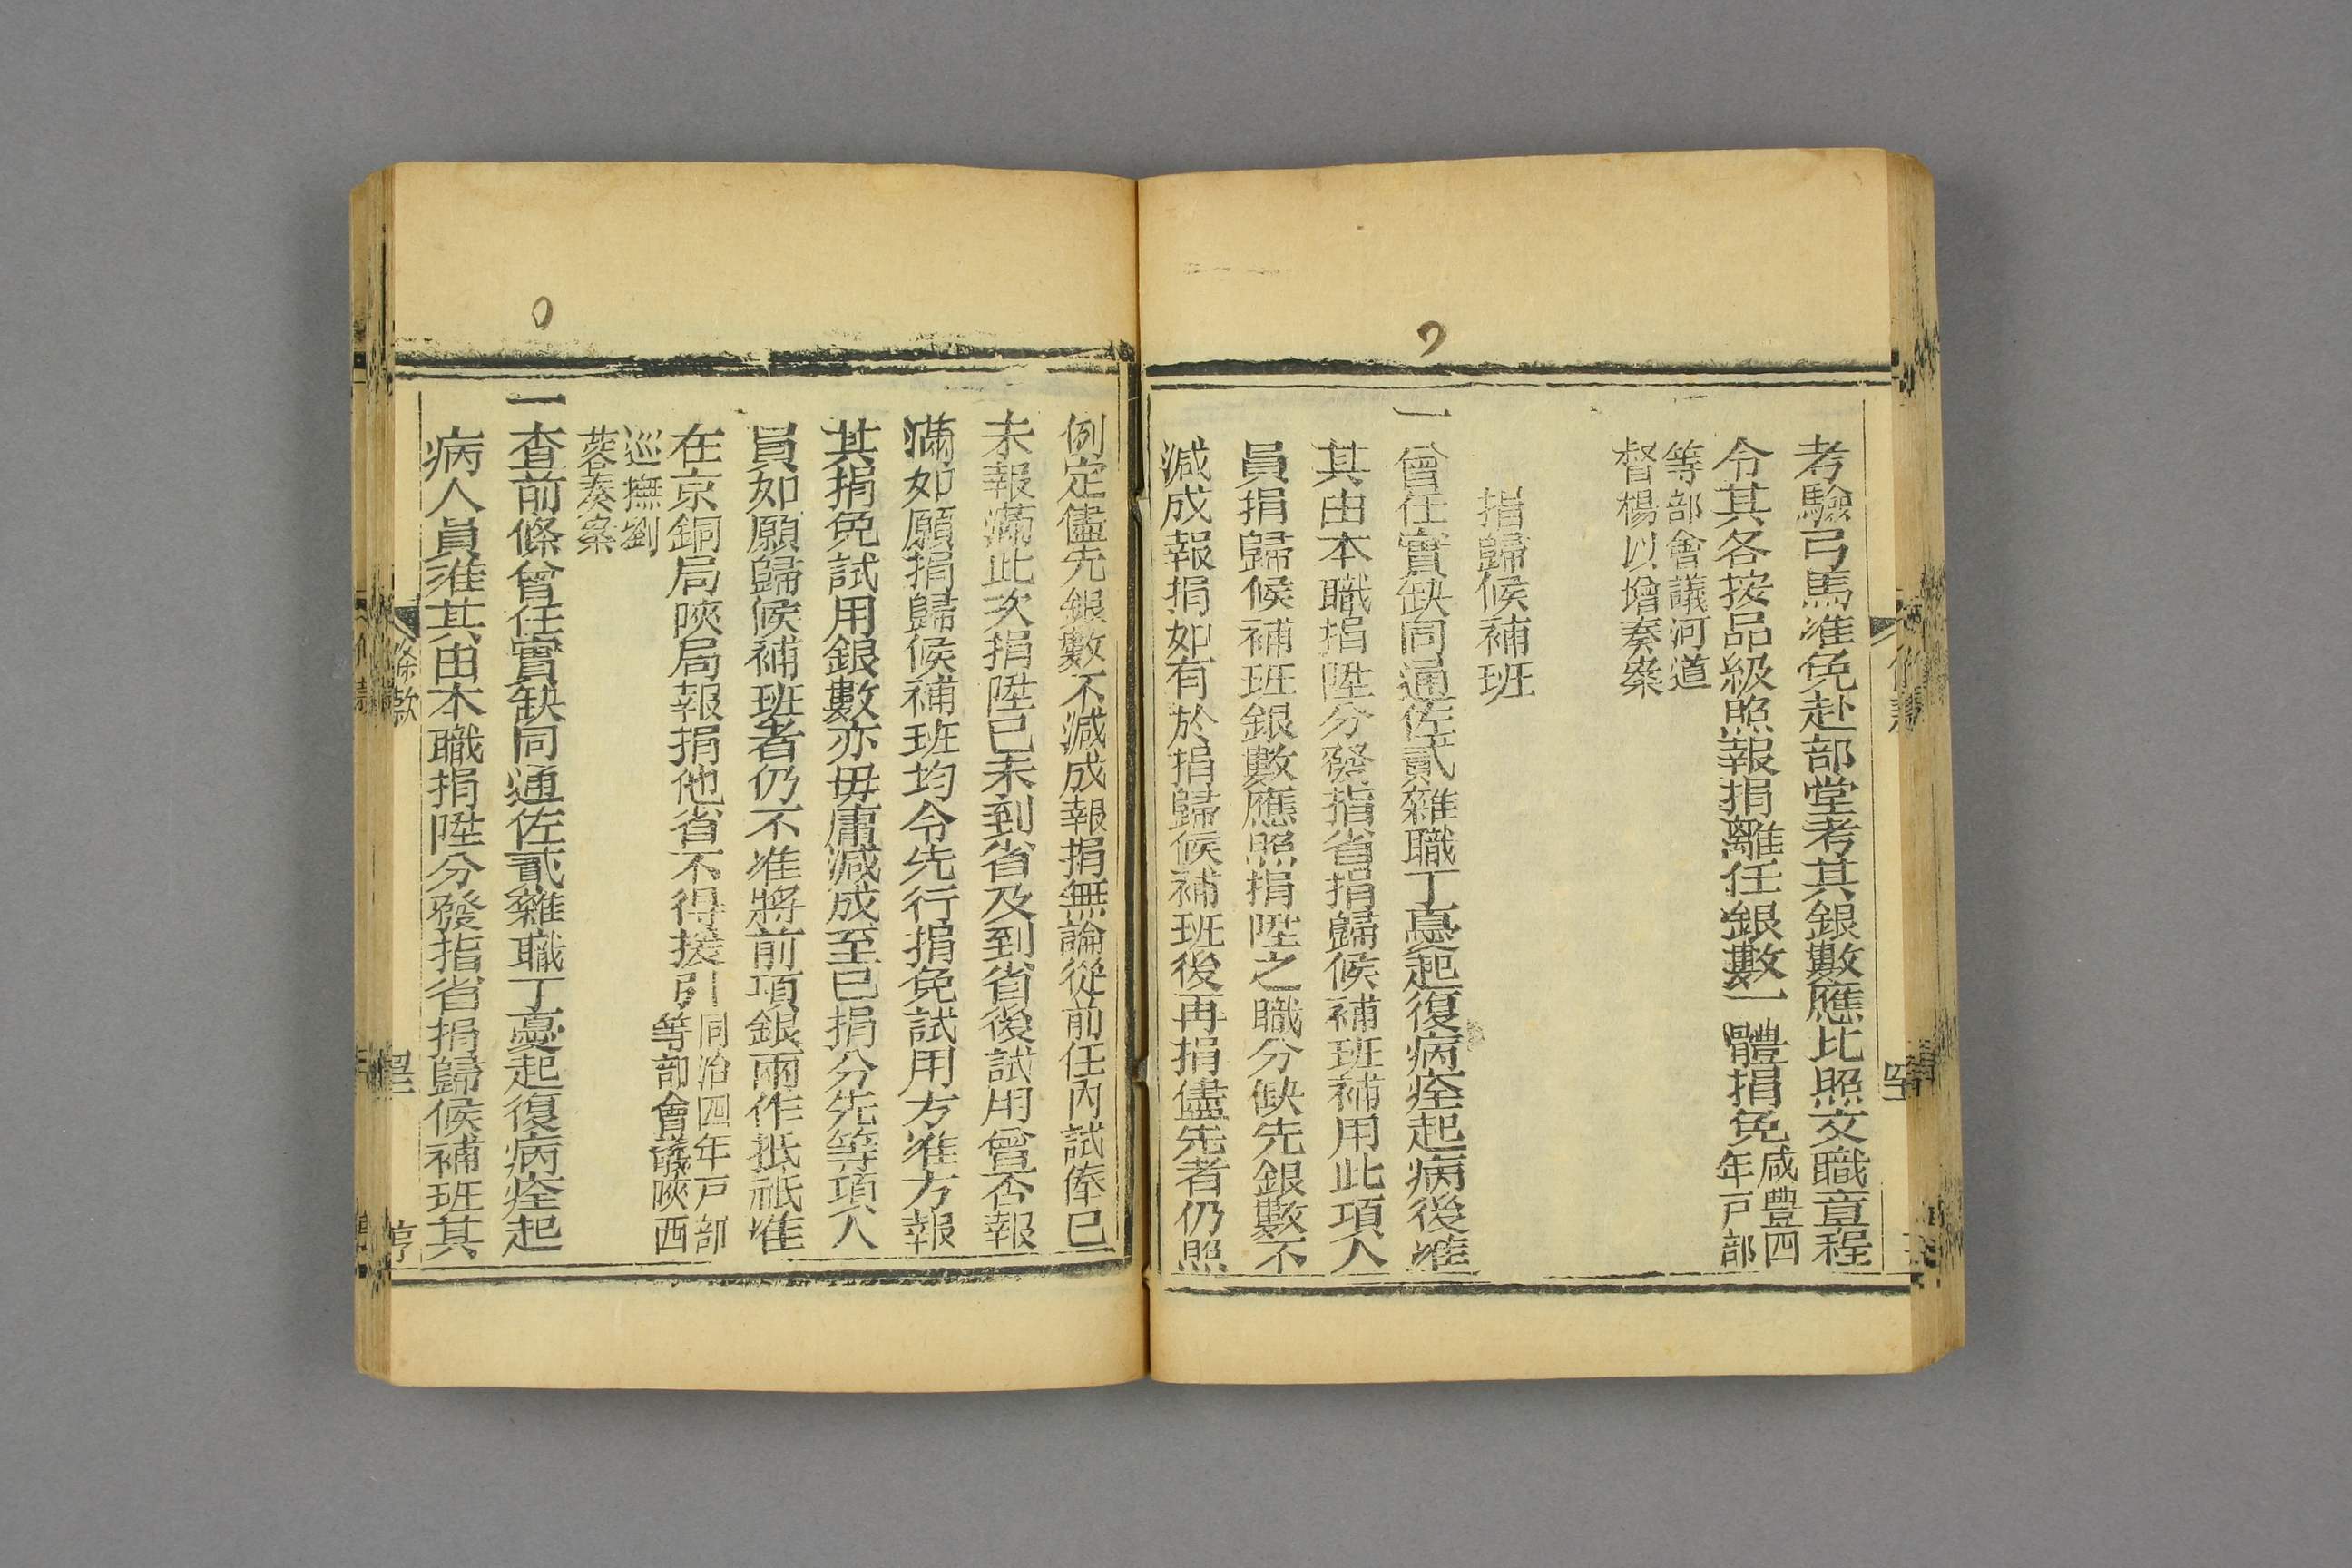 考驗弓馬准免赴部堂考其銀數應比照文職章程
令其各按品級照報捐離任銀數一體捐免咸豐四
年戸部
等部會議河道
督楊以增奏案
捐歸候補班
一曾任實缺同通佐貳雜職丁憂起復病痊起病後准
其由本職捐陞分發指省捐歸候補班補用此項人
員捐歸候補班銀數應照捐陞之職分缺先銀數不
減成報捐如有於捐歸候補班後再捐儘先者仍照
例定儘先銀數不減成報捐無論從前任內試俸已
未報滿此次捐陞已未到省及到省後試用曾否報
滿如願捐歸候補班均令先行捐免試用方准方報
其捐免試用銀數亦毋庸減成至已捐分先等項人
員如願歸候補班者仍不准將前項銀兩作抵祇准
在京銅局陝局報捐他省不得援引同治四年戸部
等部會議陝西
巡撫劉
蓉奏案
一查前條曾任實缺同通佐貳雜職丁憂起復病痊起
病人員准其由本職捐陞分發指省捐歸候補班其
條款
亨